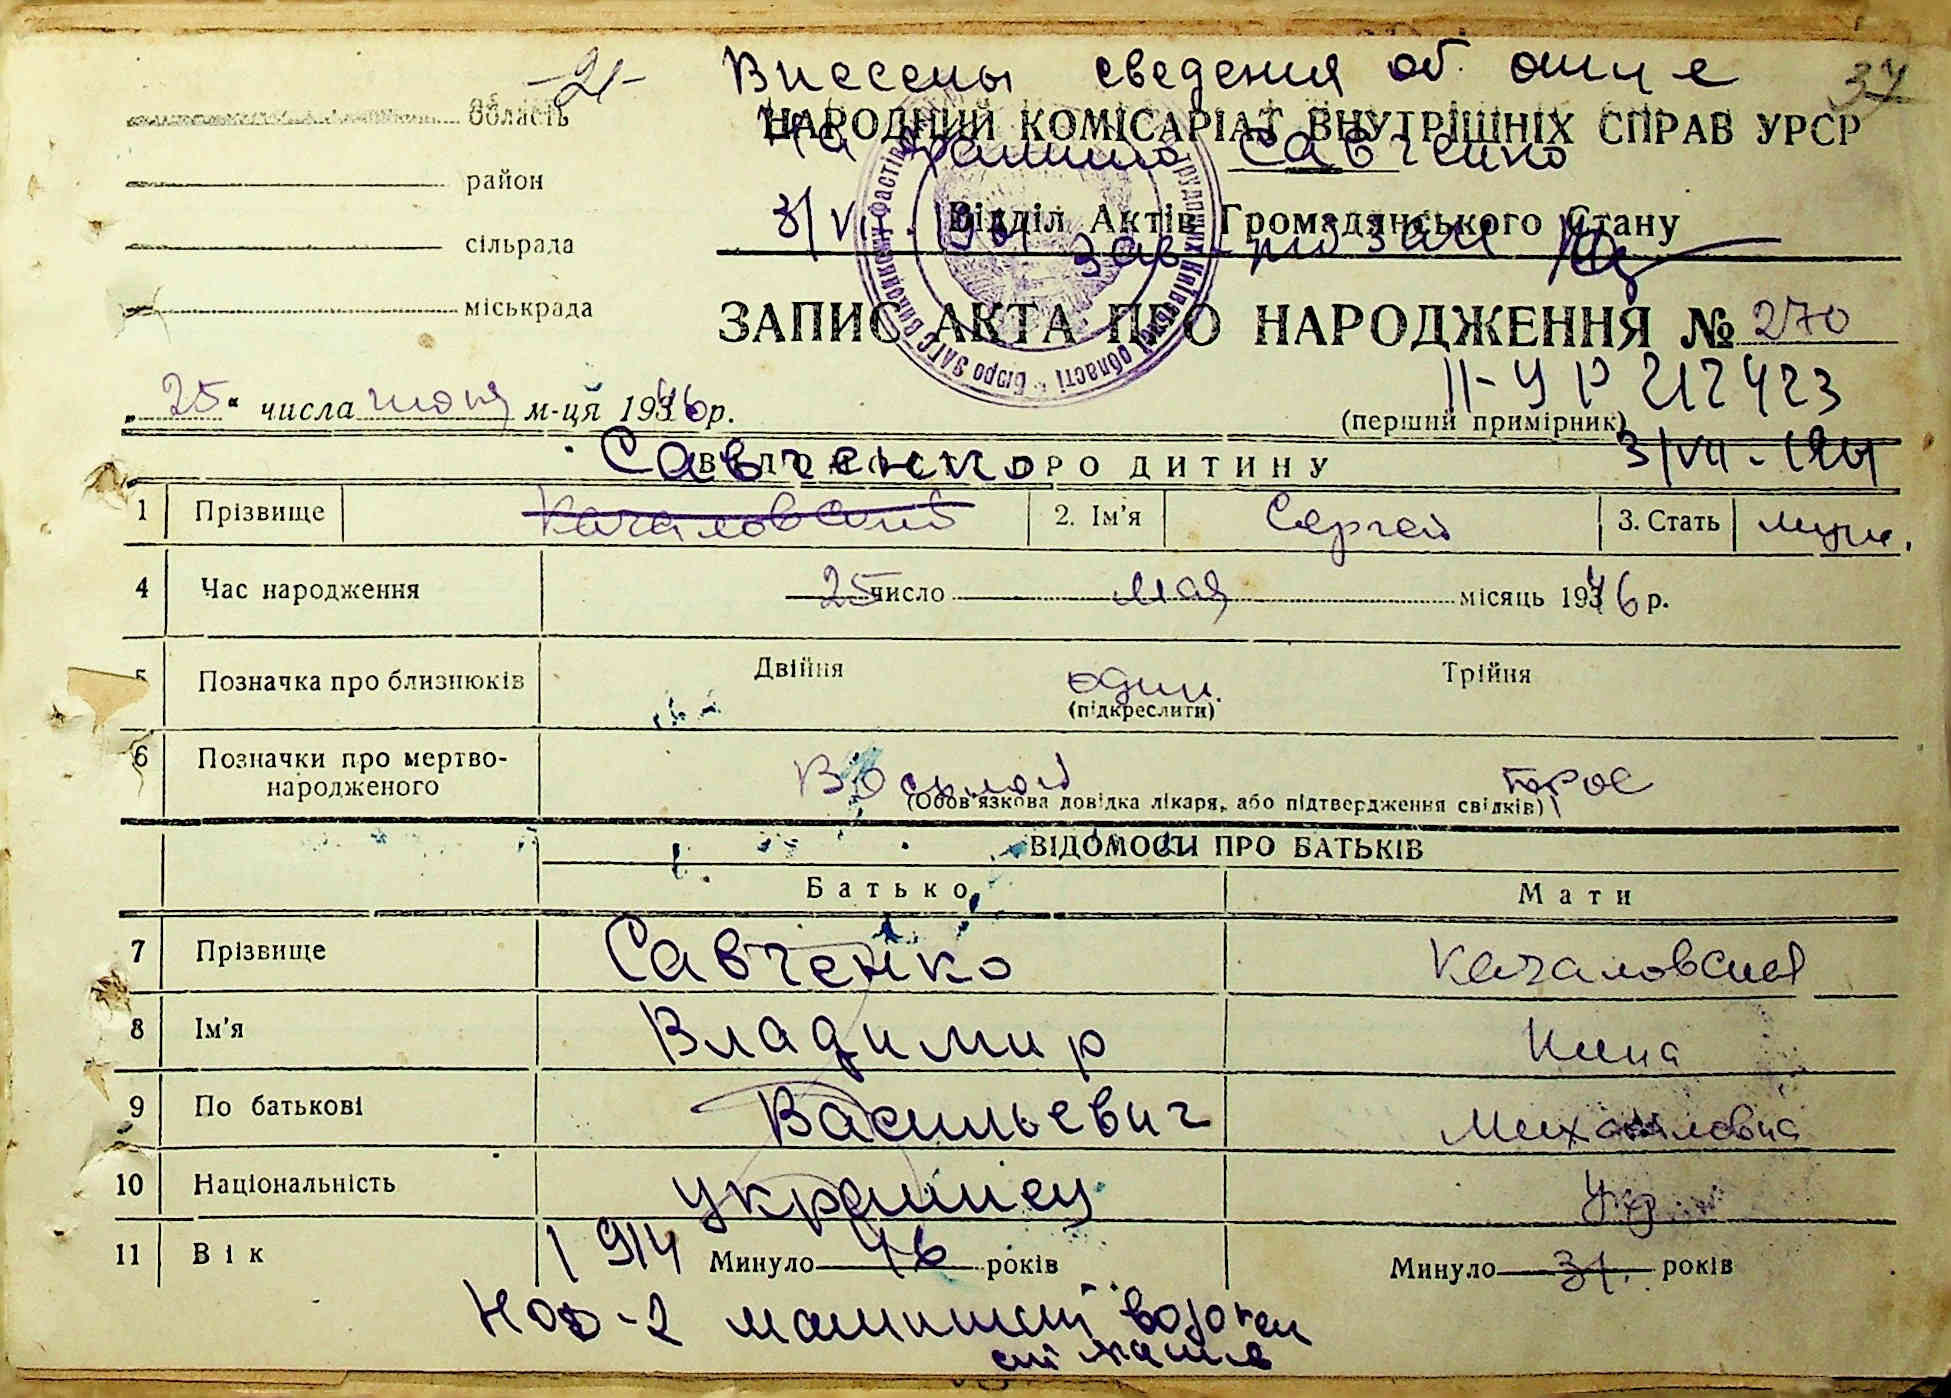 -21- Внесены сведения об отце 37
область НАРОДНИЙ КОМІСАРІАТ ВНУТРІШНІХ СПРАВ УРСР
на фамилию Савченко
район
3/VII Відділ Актів Громадянського Стану
сільрада
міськрада
ЗАПИС АКТА ПРО НАРОДЖЕННЯ № 270
II-УР 212423
„25“ числа июня м-ця 1946 р. (перший примірник)
3/VII-1961
Савченко
ВІДОМОСТІ ПРО ДИТИНУ
1 Прізвище Качаловский 2. Ім'я Сергей 3. Стать муж.
4 Час народження 25 число мая місяць 1946 р.
5 Позначка про близнюків Двійня один. Трійня
(підкреслити)
6 Позначки про мертво-
народженого Восьмой
(Обов'язкова довідка лікаря, або підтвердження свідків)
ВІДОМОСТІ ПРО БАТЬКІВ
Батько Мати
7 Прізвище Савченко Качаловская
8 Ім'я Владимир Нина
9 По батькові Васильевич Михайловна
10 Національність украинец Укр
11 Вік 1914 Минуло 46 років Минуло 31. років
машинист